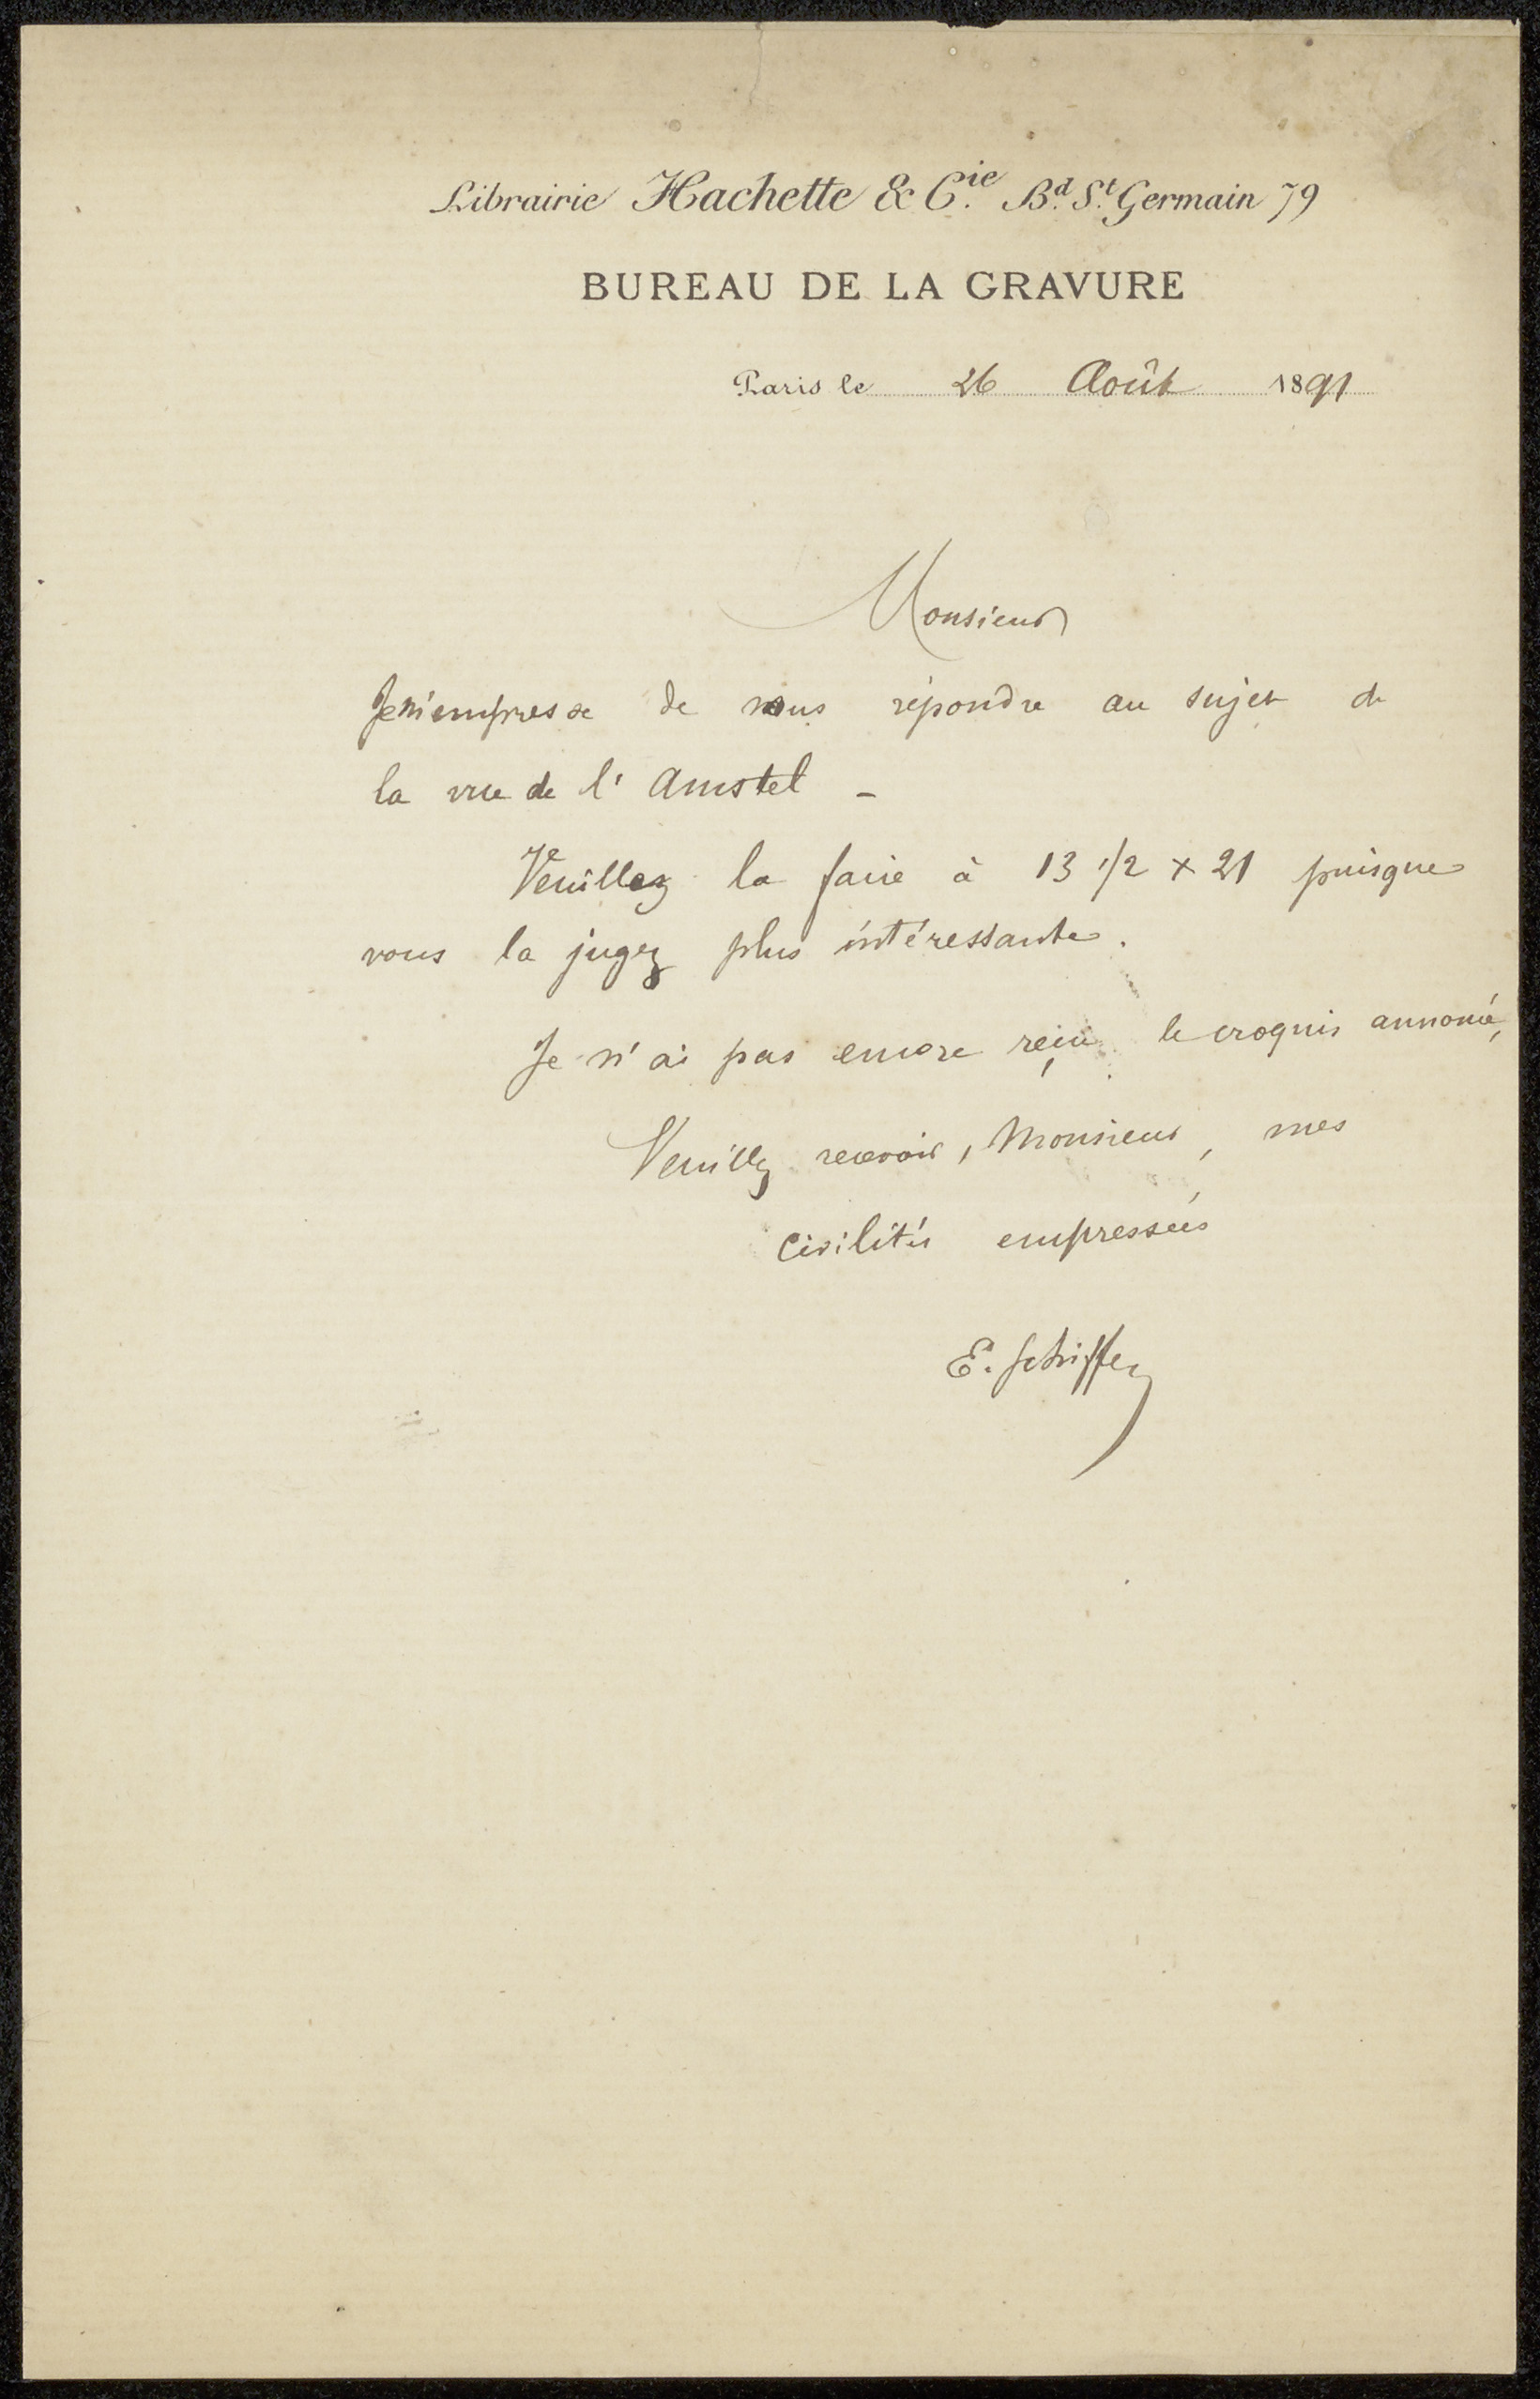 Librairie Hachette & Cie. Bd. St. Germain 79
BUREAU DE LA GRAVURE
Paris le 26 Août 1891
Monsieur
Je m'empresse de vous répondre au sujet de
la vue de l'Amstel -
Veuillez la faire à 13 1/2 x 21 puisque
vous la jugez plus intéressante.
Je n'ai pas encore reçu le croquis annoncé,
Veuillez recevoir, Monsieur, mes
civilités empressées
E. Schiffer